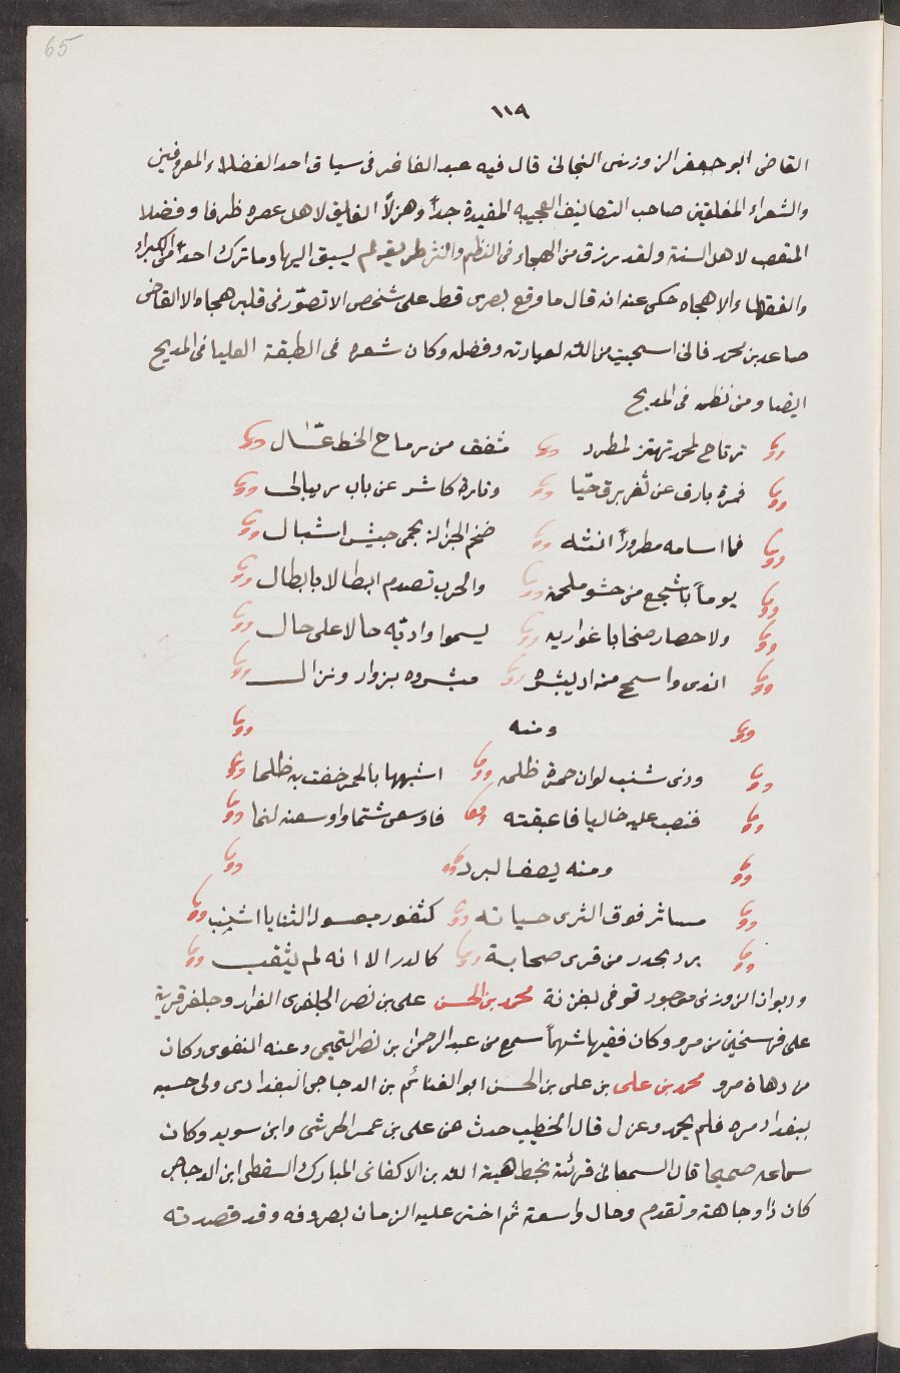 65
١١٩
القاضى ابو جعفر الزوزنى البحاثى قال فيه عبد الغافر فى سياق احد الفضلاء المعروفين
والشعراء المفلقين صاحب التصانيف العجيبه المفيدة جداً وهزلاً الفايق لاهل عصره ظرفا وفضلا
المتعصب لاهل السنة ولقد رزق من الهجاء فى النظم والنثر طريقه لم يسبق اليها وما ترك احداً من الكبراء
والفقهاء الا هجاه حكى عنه انه قال ما وقع بصرى قط على شخص الا تصوّر فى قلبى هجاه الا القاضى
صاعد بن محمد فانى استحييت من الله لعبادته وفضله وكان شعره فى الطبقة العليا فى المديح
ايضا ومن نظمه فى المديح
ترتاح لمحمد تهتز لمطرد مثقف من رماح الخط عسّال
فمرة بارق عن ثغر برق حيّا وتارة كاشر عن ناب ريبال
فما اسامه مطروراً ضخم الجزالة يحمى جيش اشبال
يوماً باشجع من حشو ملحمة والحرب تصدم ابطالا بابطال
ولا صحابا غواربه يسموا واديه حالا على حال
اندى واسمح منه اذ يبشره مبشروه بزوار ونزال
ومنه
وذى شنب لوان حمرة ظلمه اشبهها بالجمر خفت به ظلما
قبضت عليه خاليا فاعتقته فاوسعنى شتما واوسعته لثما
ومنه يصف البرد
متناثر فوق الثرى حباته كثغور معسول الثنايا اشنب
برد تحدر من ذرى صحابة كالدر الا انه لم يثقب
وديوان الزوزنى موجود توفى بغزنة محمد بن الحسن على بن نصر الجلفرى القزاز وجلفر قرية
على فرسخين من مرو وكان فقيها شهماً سمع من عبد الرحمن بن نصر التجيبى وعنه النغوى وكان
من دهاة مرو محمد بن على بن على بن الحسن ابو الغنائم بن الدجاجى البغدادى ولى حسبه
ببغداد مره فلم يحمد وعزل قال الخطيب حدث عن على بن عمر الحربى وابن سويد وكان
سماعه صحيحا قال السمعانى قرئت بخط هبة الله بن المبارك السقطى ابن الدجاجى
كان ذا وجاهة وتقدم وحال واسعة ثم اخنى عليه الزمان بصروفه وقد قصدته